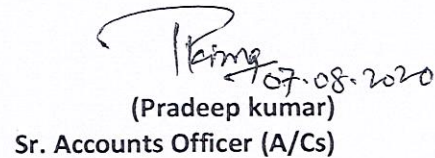 07.08.2020
(Pradeep kumar)
Sr. Accounts Officer (A/Cs)